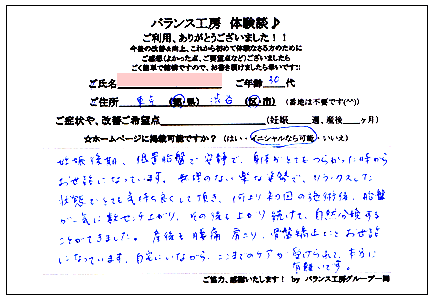 バランス工房 体験談♪
ご利用、ありがとうございました！！
今後の改善&向上、これから初めて体験なさる方のために
ご感想(よかった点、ご要望点など)ございましたら
ごく簡単で結構ですので、お書き頂けましたら幸いです!!
ご氏名 ご年齢 30 代
ご住所 東京 (都・県) 渋谷 (区・市) (番地は不要です(^^))
ご症状や、改善ご希望点 (妊娠 週、産後 ヶ月)
☆ホームページに掲載可能ですか？ (はい・イニシャルなら可能・いいえ)
妊娠後期、低置胎盤で安静で、身体がとてもつらかった時から
お世話になっています。無理のない楽な姿勢で、リラックスした
状態でとても気持ち良くして頂き、何より初回の施術後、胎盤
が一気に数センチ上がり、その後も上がり続けて、自然分娩する
ことができました。産後も腰痛、肩こり、骨盤矯正でとお世話
になっています。自宅にいながら、ここまでのケアが受けられて、本当に
有難いです。
ご協力、感謝いたします！ by バランス工房グループ一同